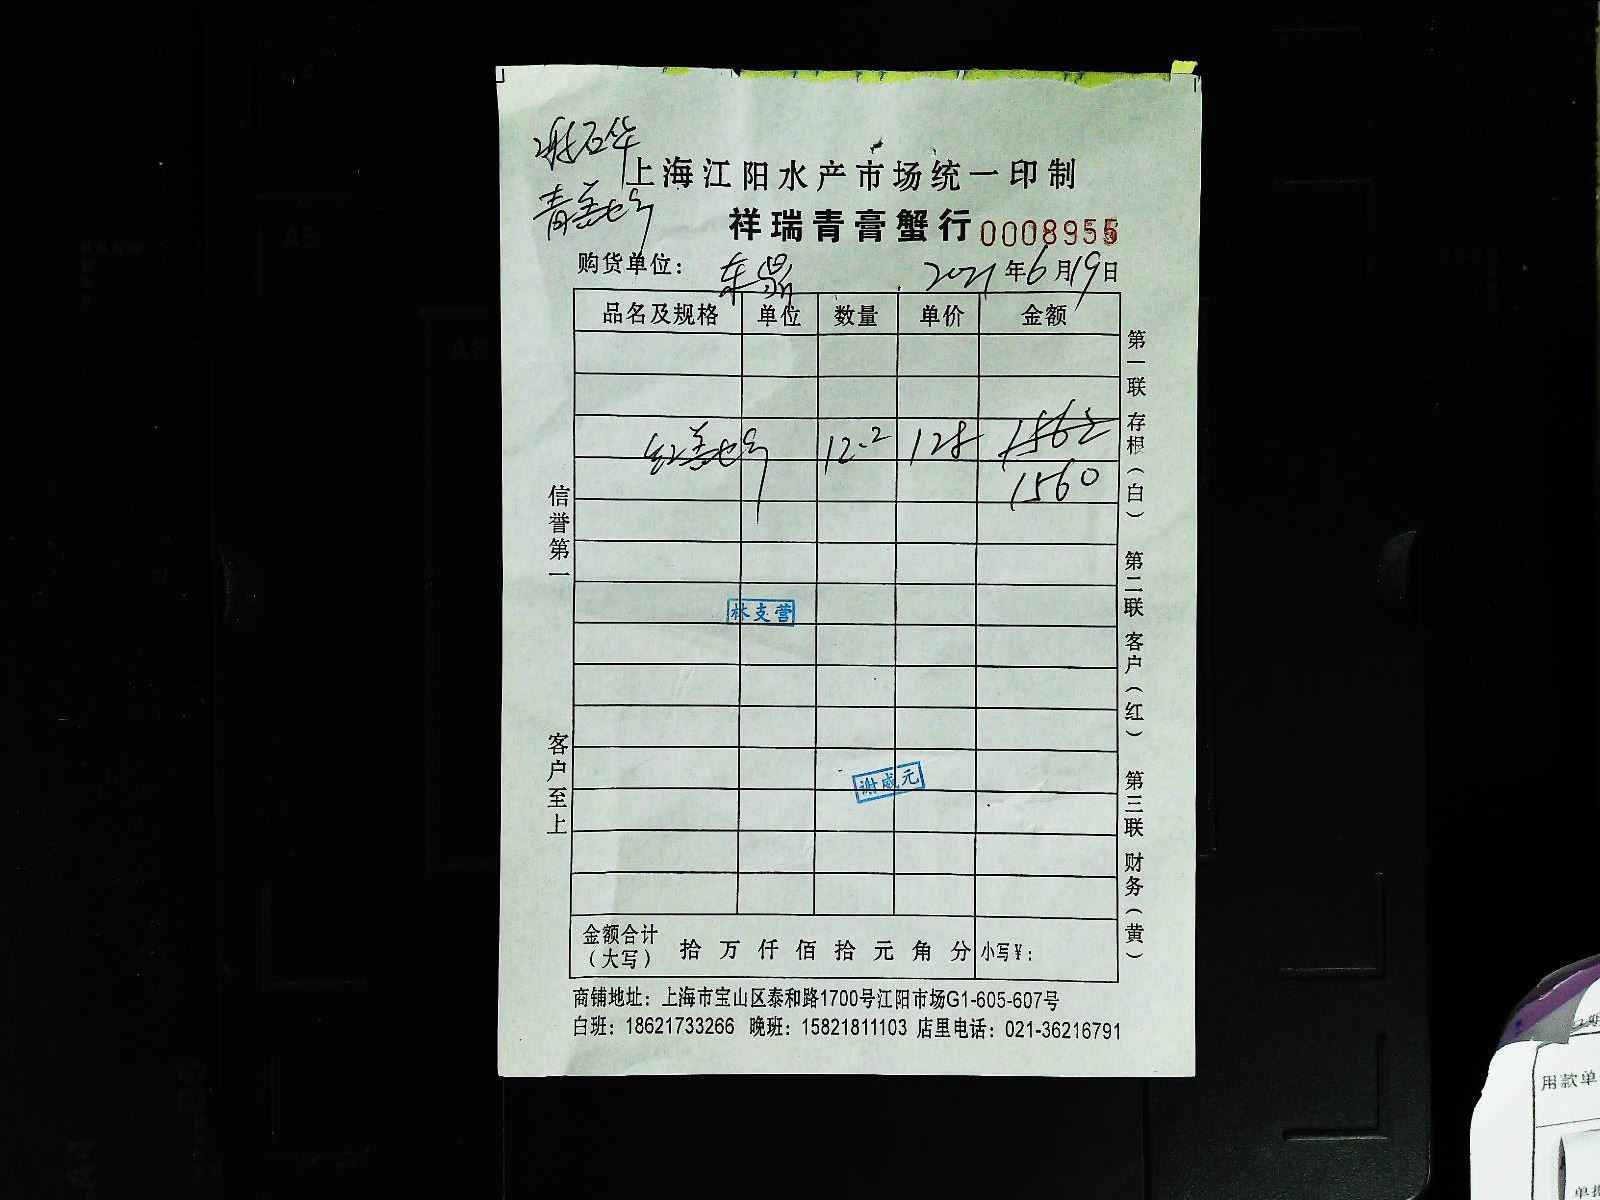 上海江阳水产市场统一印制
祥瑞青膏蟹行 0008955
购货单位： 东鼎 2021年6月19日
品名及规格 单位 数量 单价 金额
12.2 128 1562
1560
林支营
谢威元
金额合计（大写） 拾 万 仟 佰 拾 元 角 分 小写¥：
商铺地址：上海市宝山区泰和路1700号江阳市场G1-605-607号
白班：18621733266 晚班：15821811103 店里电话：021-36216791
信誉第一
客户至上
第一联 存根（白）
第二联 客户（红）
第三联 财务（黄）
用款单